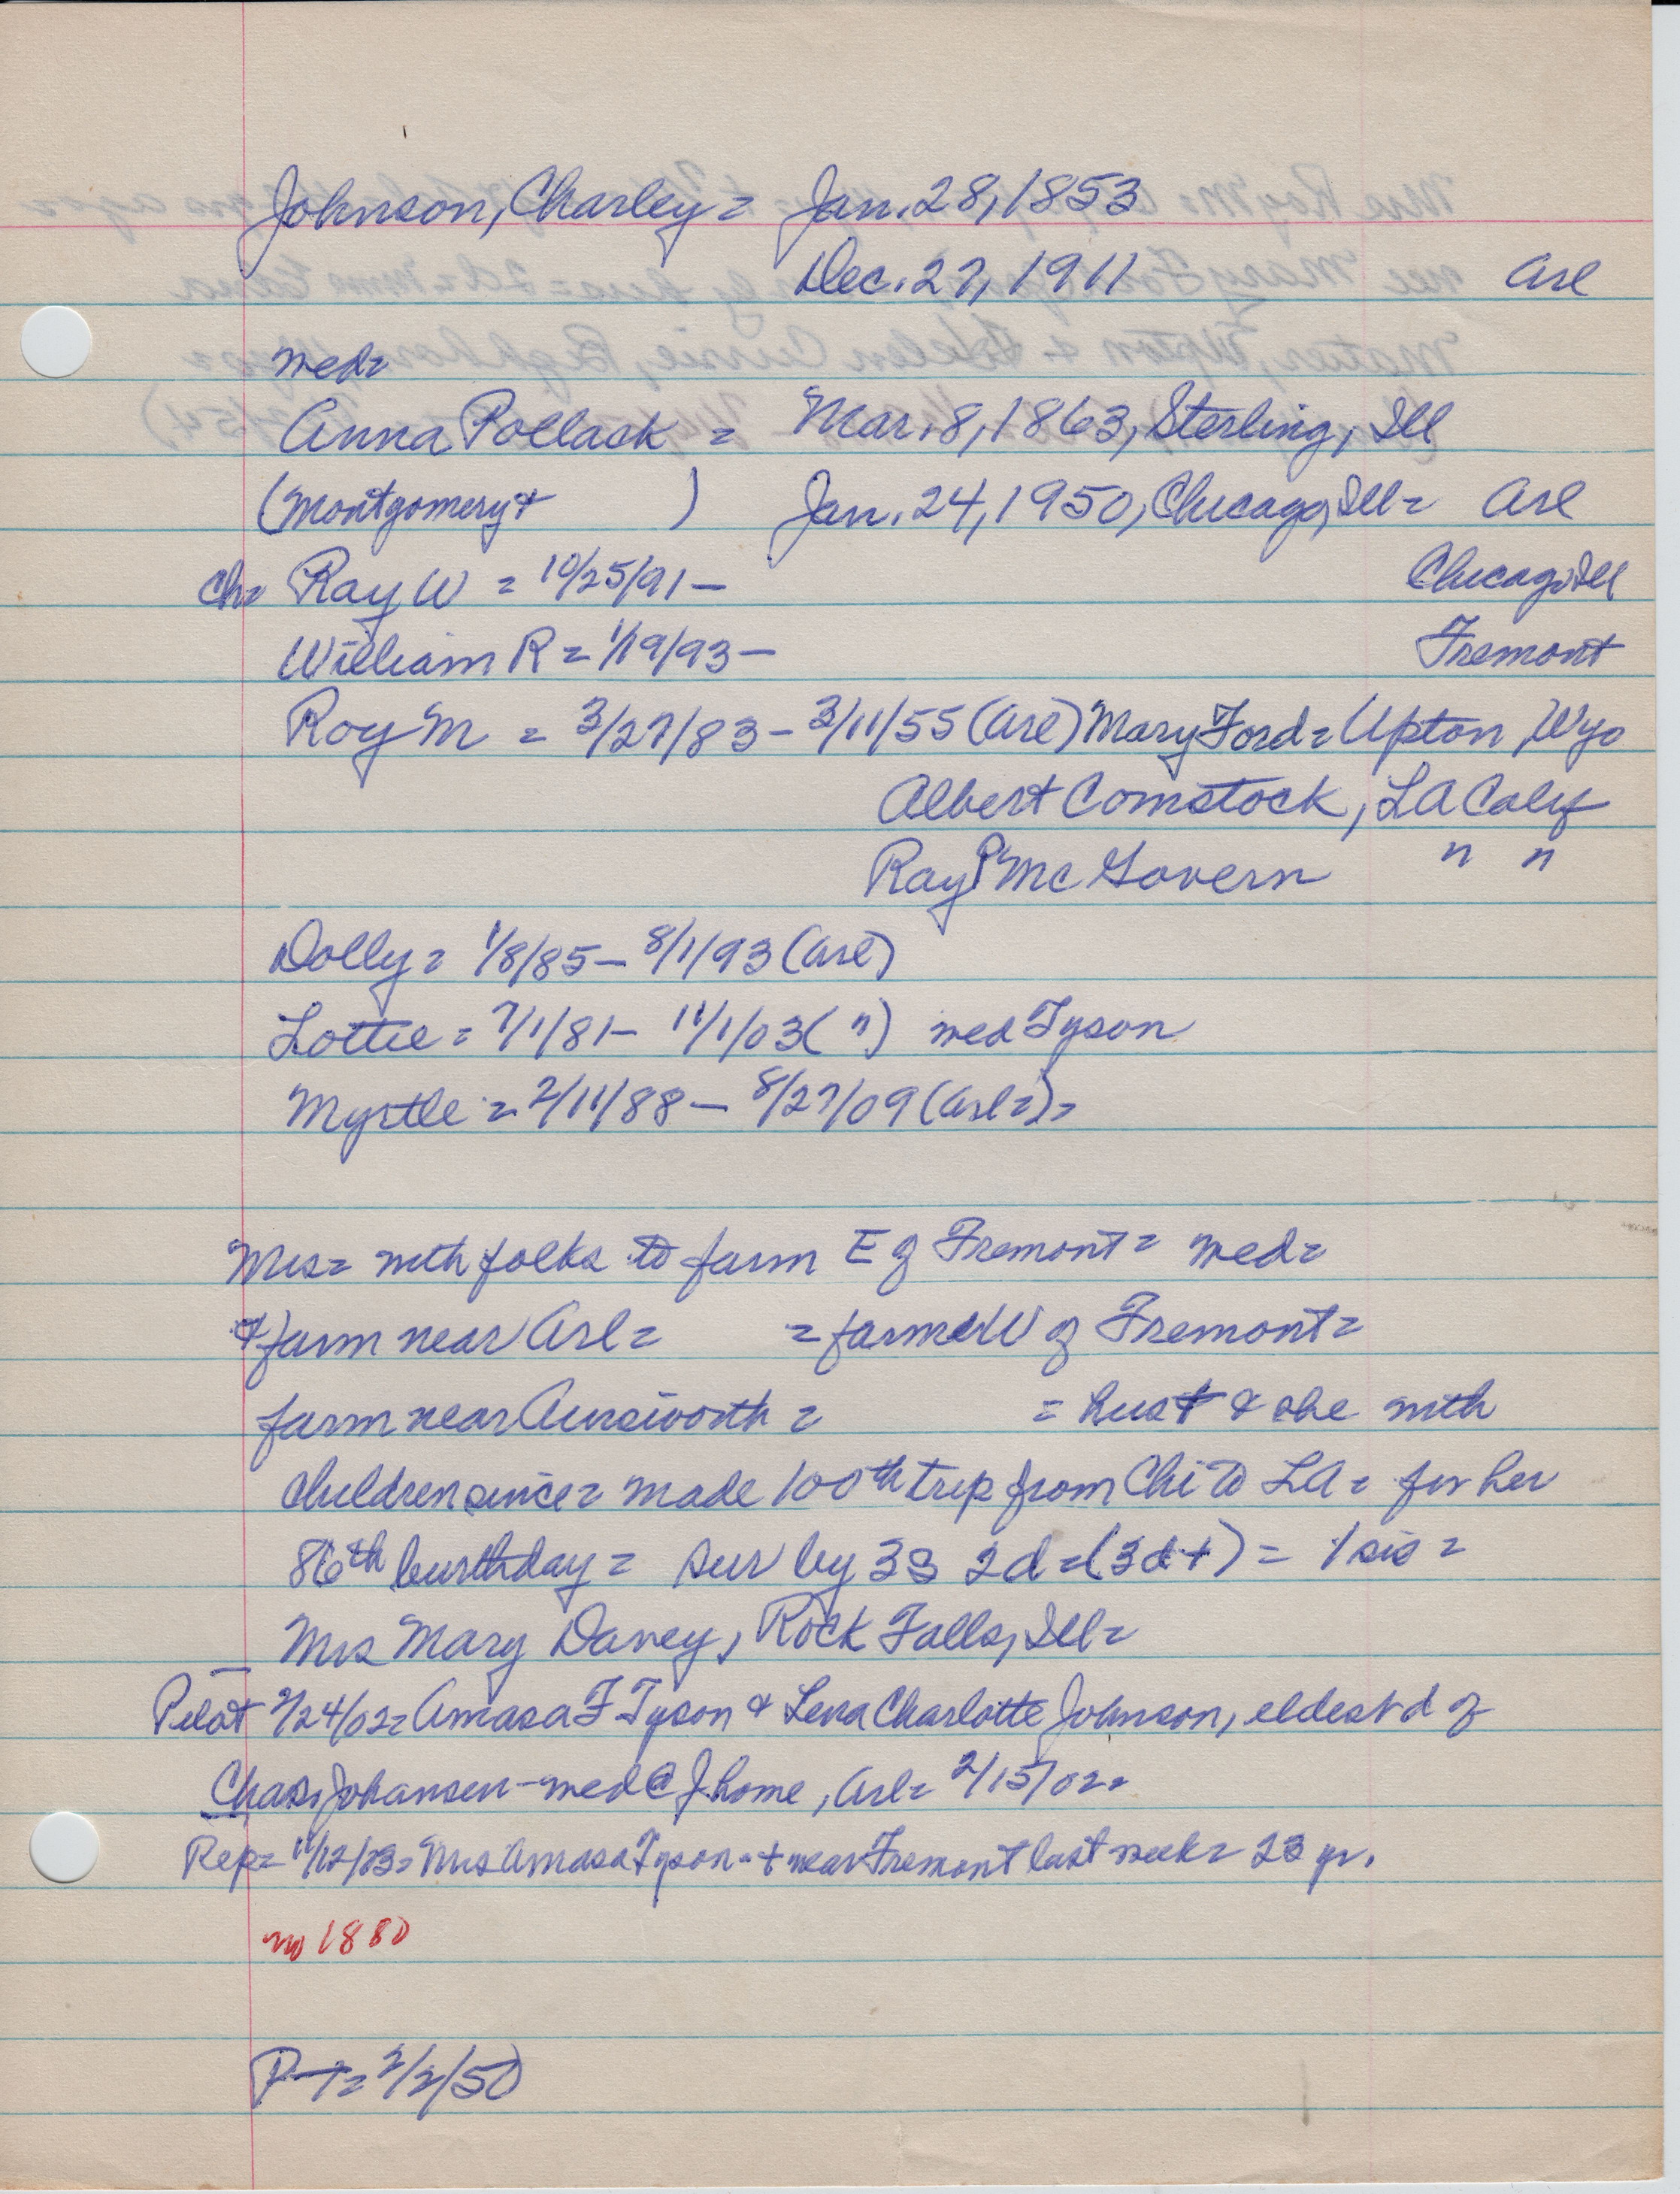 Johnson, Charley = Jan. 28, 1853
Dec. 27, 1911 Arl
med=
Anna Pollack = Mar. 8, 1863, Sterling, Ill
(Montgomery + ) Jan. 24, 1950, Chicago, Ill = Arl
ch= Ray W = 10/25/91 – Chicago, Ill
William R = 1/19/93 – Fremont
Roy M = 3/27/83 – 3/11/55 (Arl) Mary Ford = Upton, Wyo
Albert Comstock, LA Calif
Ray P McGovern " "
Dolly = 1/8/85 – 8/1/93 (Arl)
Lottie = 7/1/81 – 11/1/03 ( " ) med Tyson
Myrtle = 2/11/88 – 8/27/09 (Arl =) =
Mrs = with folks to farm E of Fremont = med =
+ farm near Arl = = farmed W of Fremont =
farm near Ainsworth = = hus + & she with
children since = made 100th trip from Chi to LA = for her
86th birthday = sur by 3S 2d = (3d +) = 1 sis =
Mrs Mary Davey, Rock Falls, Ill =
Pilot 2/24/02 = Amasa F Tyson & Lena Charlotte Johnson, eldest d of
Chas. Johansen – med @ J home, Arl = 2/15/02 =
Rep = 11/12/03 = Mrs Amasa Tyson - + near Fremont last week = 23 yr.
no 1880
P + = 2/2/50